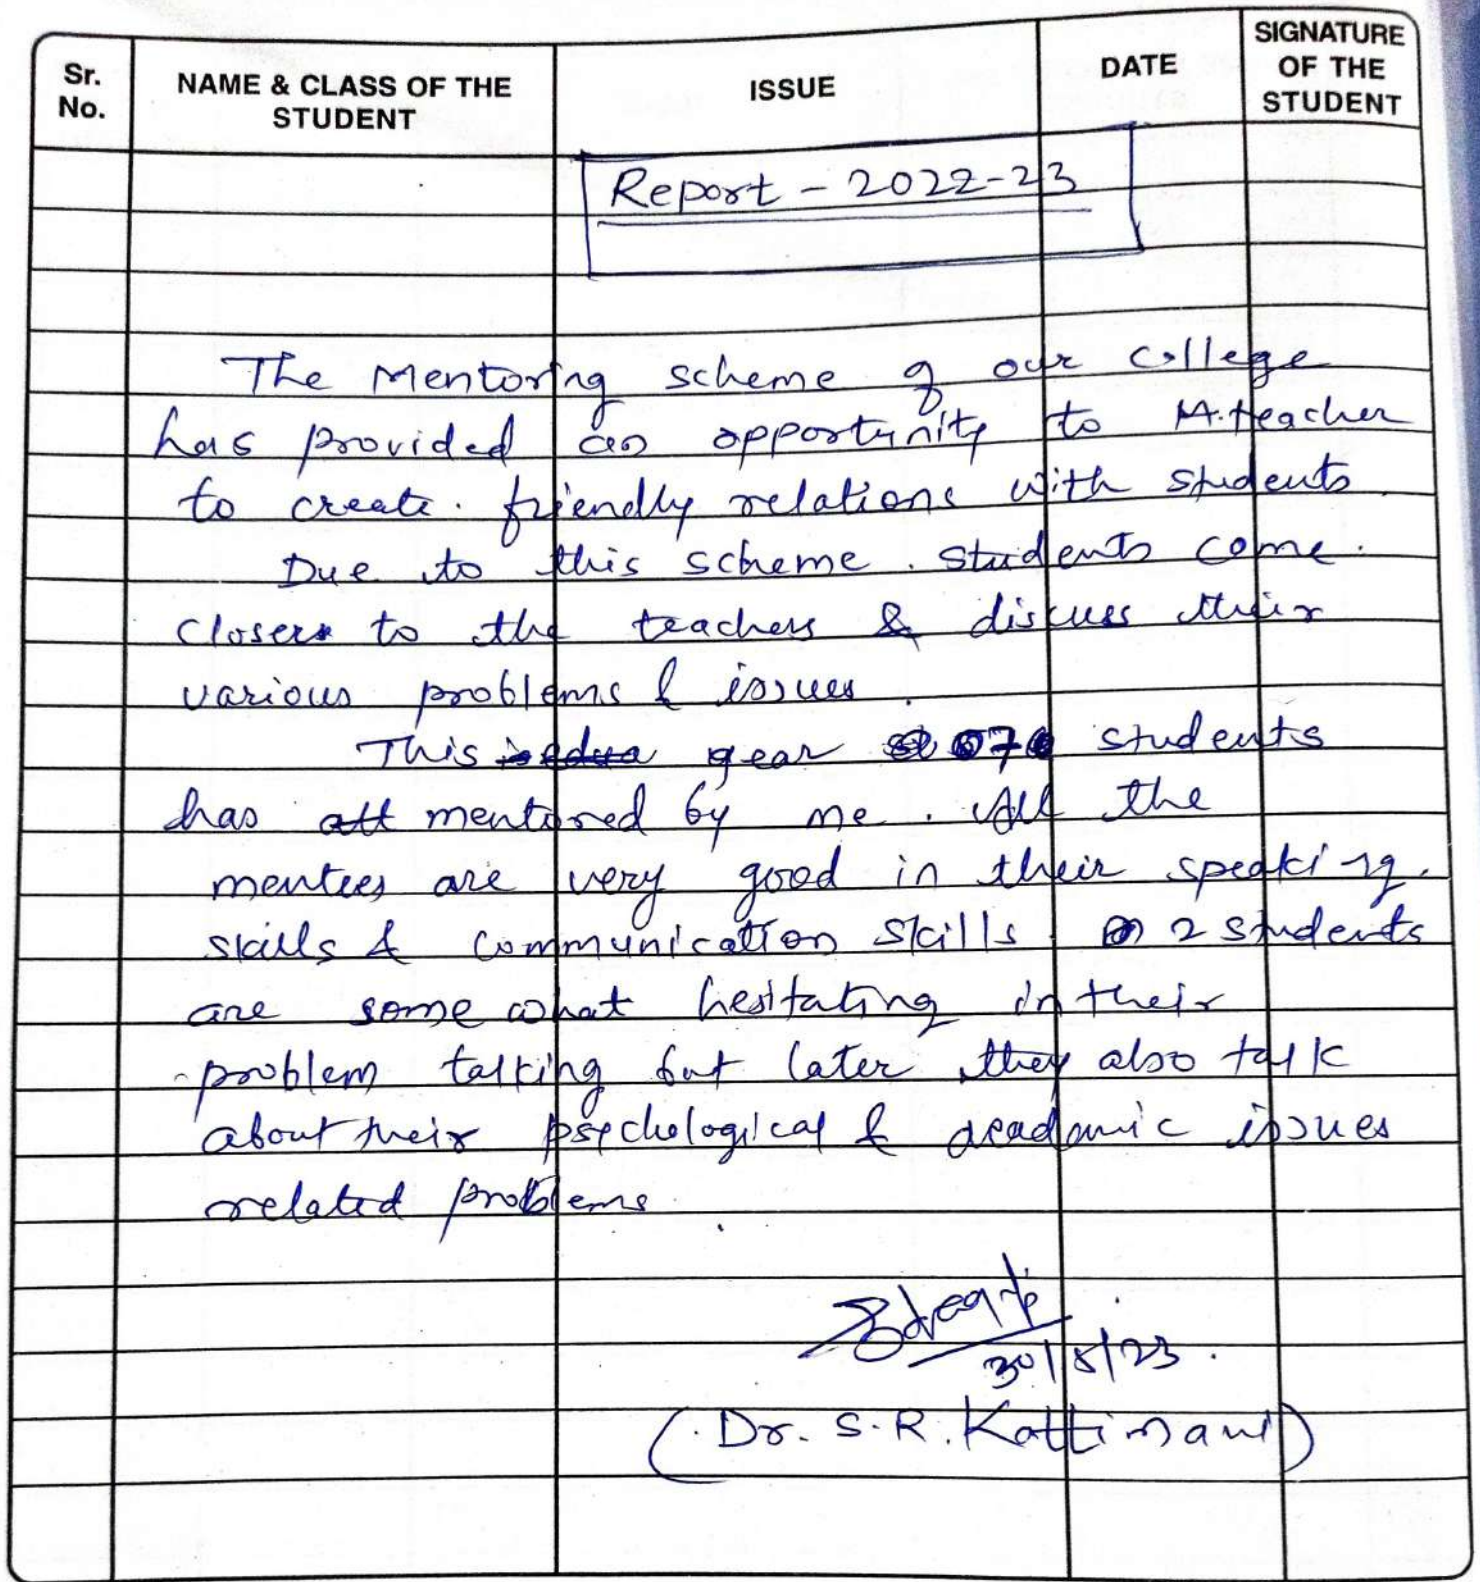 Sr. No.
NAME & CLASS OF THE STUDENT
ISSUE
DATE
SIGNATURE OF THE STUDENT
Report - 2022-23
The Mentoring scheme of our college
has provided an opportunity to M.teacher
to create. friendly relations with students
Due to this scheme. students come.
closer to the teachers & discuss their
various problems & issues.
This year 07 students
has mentored by me. All the
mentees are very good in their speaking.
skills & communication skills. 2 students
are some what hesitating in their
problem talking but later they also talk
about their psychological & academic issues
related problems.
30/5/23.
(Dr. S.R. Kattimani)